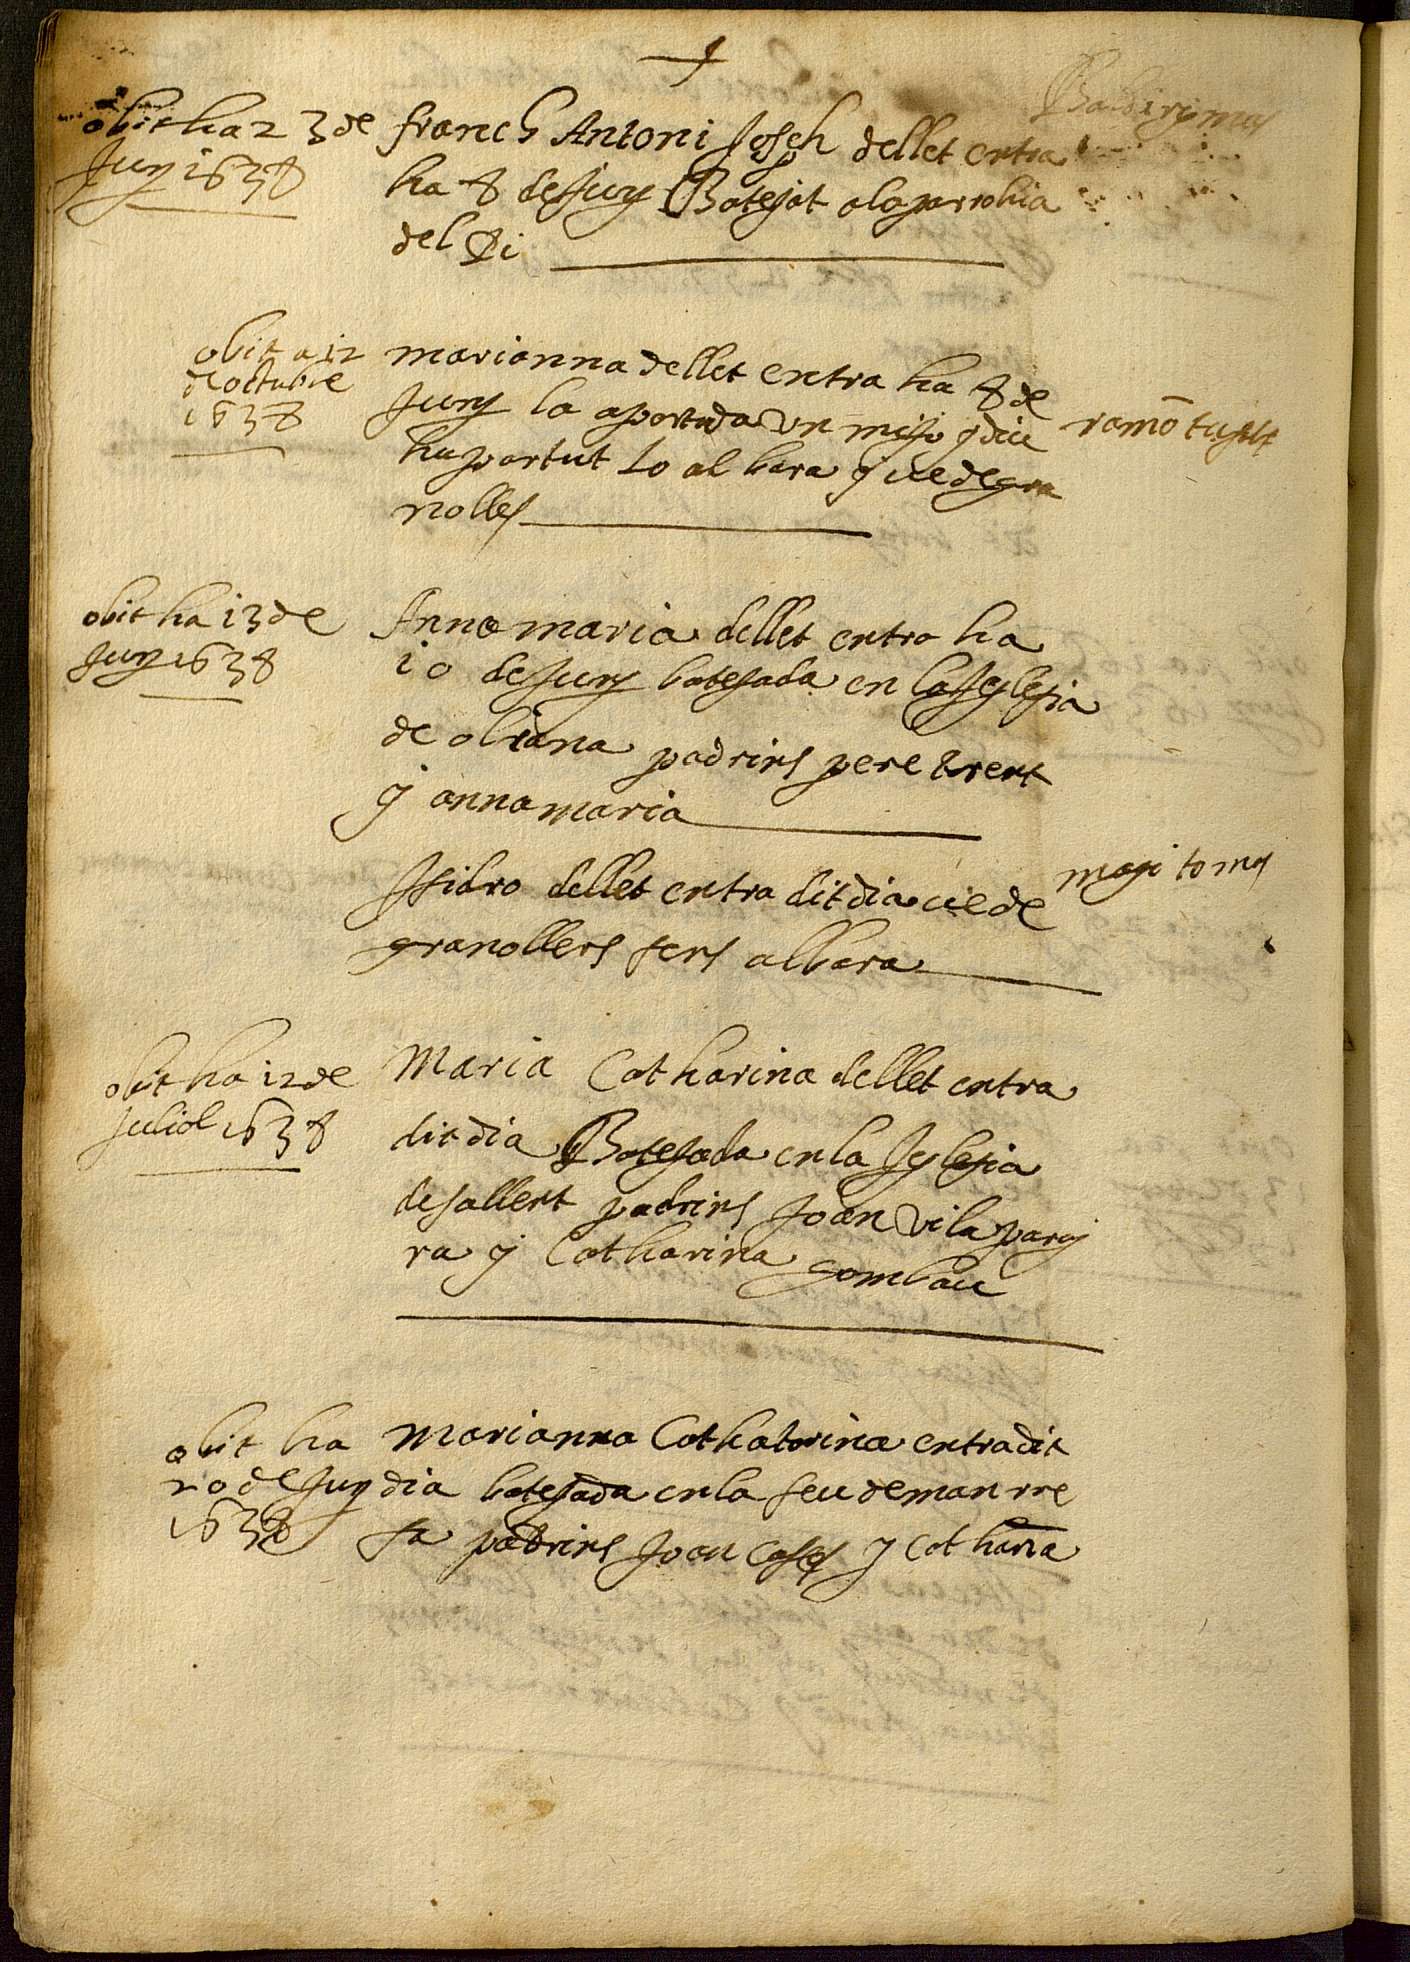 obit ha 23 de
Juny 1638
franch Antoni Joseph dellet entra
ha 8 de Juny Batejat a la parrohia
del Pi
obit a 12
de octubre
1638
marianna dellet entra ha 8 de
Juny la aportada un miso y diu
ha partut lo albara y ve de gra
nolles
ramō
obit ha 13 de
Juny 1638
Anna maria dellet entra ha
10 de Juny batejada en la Iglesia
de oliana padrins pere brent
y anna maria
Isidro dellet entra dit dia ve de
granollers sens albara
magi tomas
obit ha 12 de
Juliol 1638
Maria Catharina dellet entra
dit dia Batejada en la Iglesia
de sallent padrins Joan vila pary
ra y Catharina gombau
obit ha
20 de Juny
1638
Marianna Cathatorina entra dit
dia batejada en la seu de manrre
sa padrins Joan y Catharīa